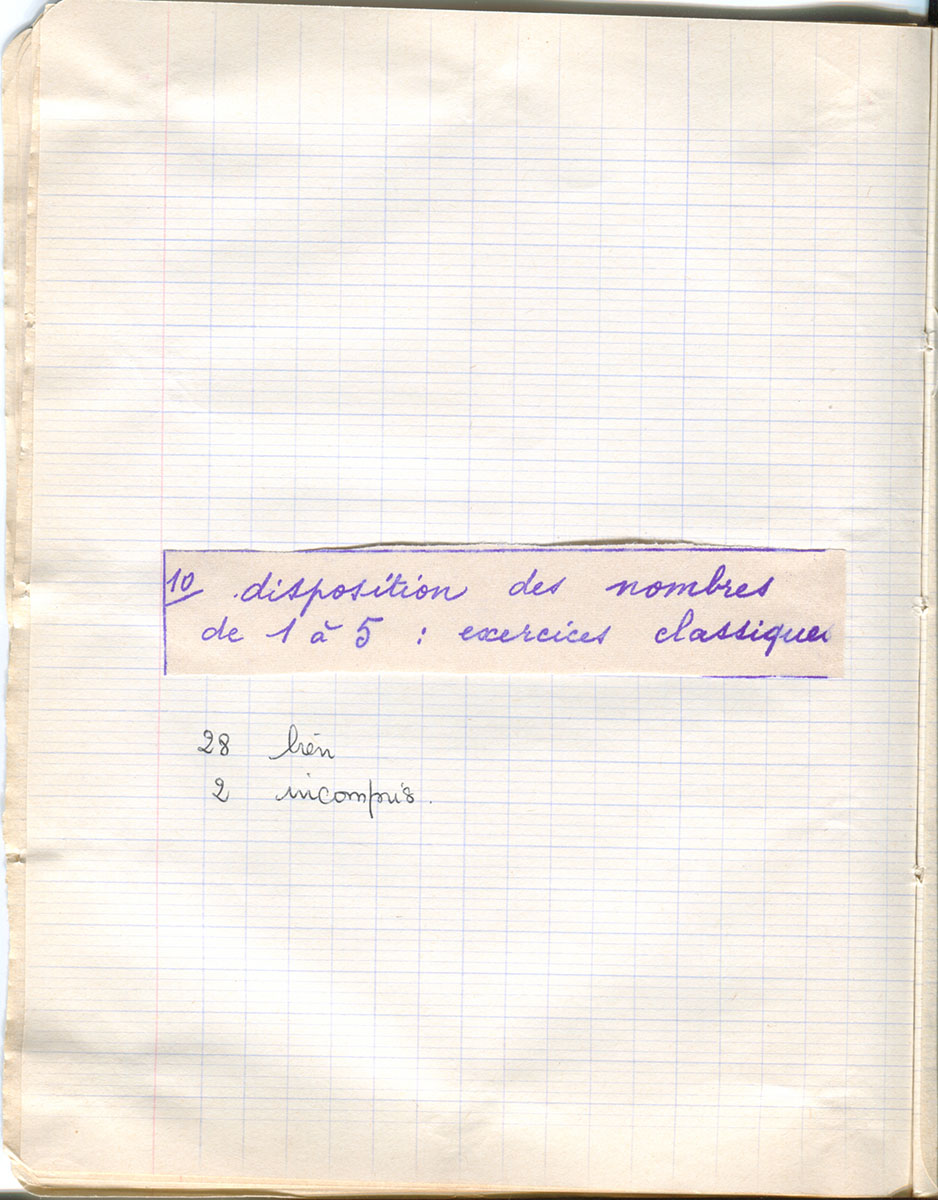 10 disposition des nombres
de 1 à 5 : exercices classiques
28 bien
2 incompris.